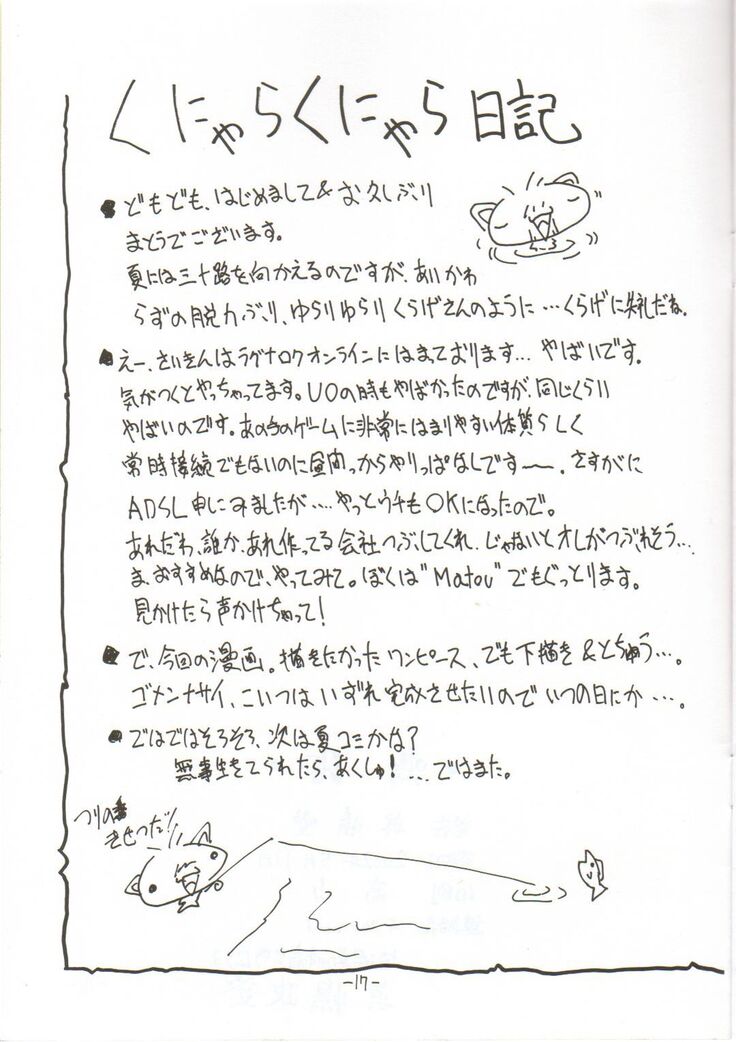 くにゃらくにゃら日記
● どもども、はじめまして&お久しぶり
まとうでございます。
夏には三十路を向かえるのですが、あいかわ
らずの脱力ぶり、ゆらりゆらりくらげさんのように…くらげに失礼だね。
● えー、さいきんはラグナロクオンラインにはまっております… やばいです。
気がつくとやっちゃってます。UOの時もやばかったのですが、同じくらい
やばいのです。あの手のゲームに非常にはまりやすい体質らしく
常時接続でもないのに昼間っからやりっぱなしです〜。さすがに
ADSL申しこみましたが…. やっとウチもOKになったので。
あれだわ、誰か、あれ作ってる会社つぶしてくれ、じゃないとオレがつぶれそう…
ま、おすすめなので、やってみて。ぼくは"Matou"でもぐっとります。
見かけたら声かけちゃって!
● で、今回の漫画。描きたかったワンピース、でも下描き&とちゅう…。
ゴメンナサイ、こいつはいずれ完成させたいのでいつの日にか…。
● ではではそろそろ、次は夏コミかな?
無事生きてられたら、あくしゅ! …ではまた。
つりの
きせつだ!!
-17-